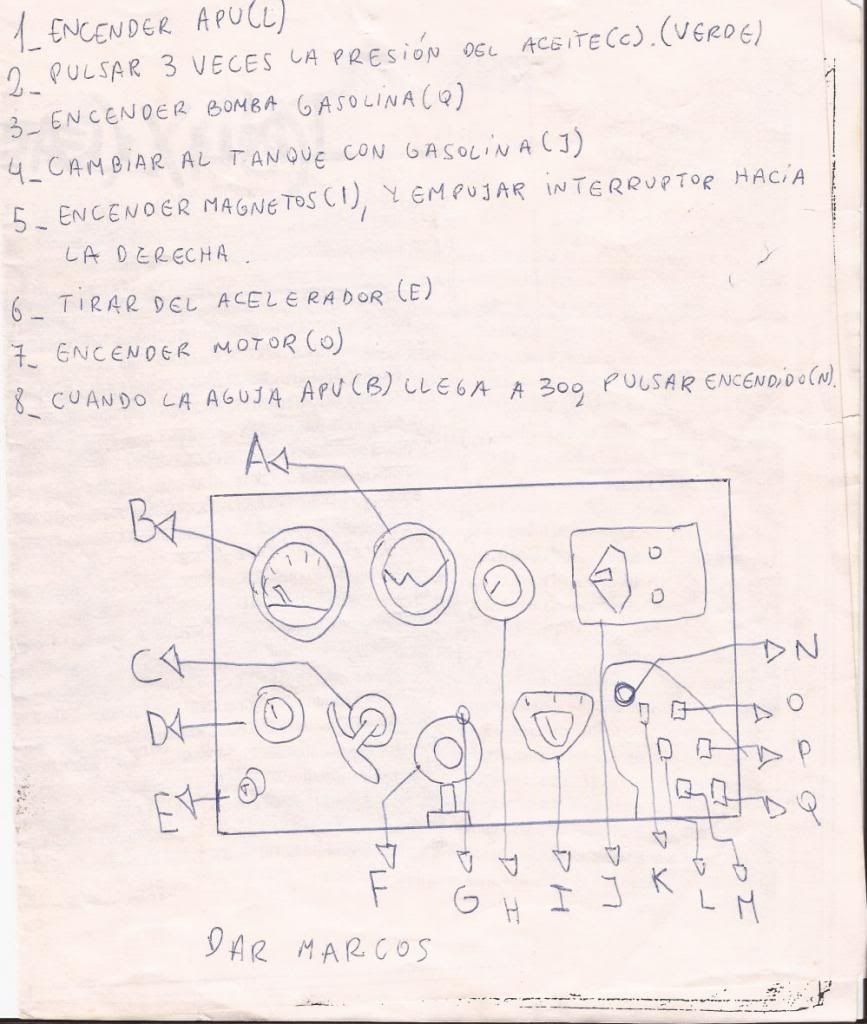 1_ ENCENDER APU(L)
2_ PULSAR 3 VECES LA PRESIÓN DEL ACEITE(C). (VERDE)
3_ ENCENDER BOMBA GASOLINA(Q)
4_ CAMBIAR AL TANQUE CON GASOLINA(J)
5_ ENCENDER MAGNETOS(I), Y EMPUJAR INTERRUPTOR HACÍA
LA DERECHA.
6_ TIRAR DEL ACELERADOR(E)
7_ ENCENDER MOTOR(O)
8_ CUANDO LA AGUJA APU(B) LLEGA A 300, PULSAR ENCENDIDO(N).
A
B
C
D
E
N
O
P
Q
F
G
H
I
J
K
L
M
DAR MARCOS